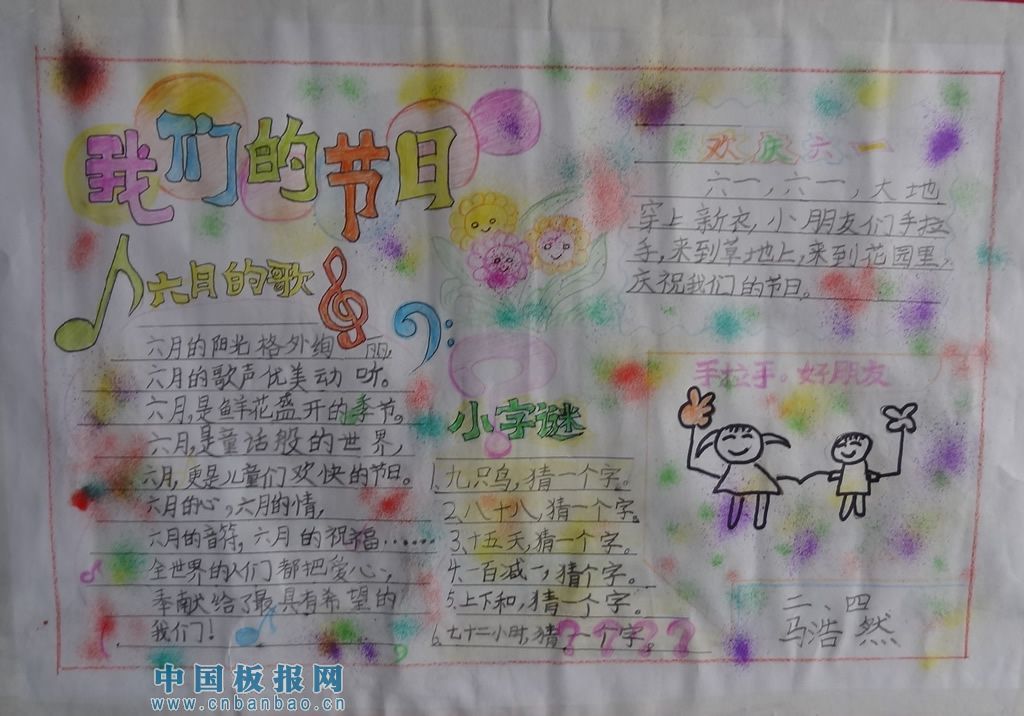 我们的节日
六月的歌
六月的阳光格外绚丽,
六月的歌声优美动听。
六月,是鲜花盛开的季节。
六月,是童话般的世界,
六月,更是儿童们欢快的节日。
六月的心,六月的情,
六月的音符,六月的祝福……
全世界的人们都把爱心,
奉献给了最具有希望的
我们!
小字谜
1.九只鸟,猜一个字。
2.八十八,猜一个字。
3.十五天,猜一个字。
4.一百减一,猜个字。
5.上下和,猜一个字。
6.七十二小时,猜一个字。
???
欢庆六一
六一,六一,大地
穿上新衣,小朋友们手拉
手,来到草地上,来到花园里,
庆祝我们的节日。
手拉手。好朋友
二、四
马浩然
中国板报网
www.cnbanbao.cn